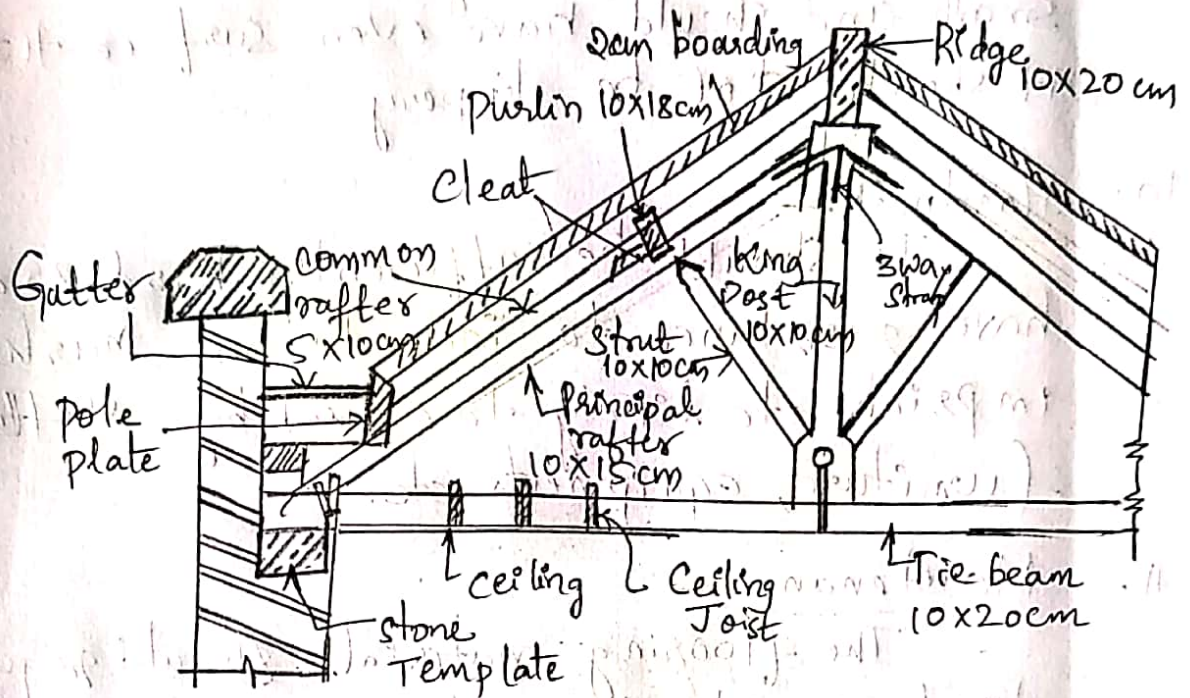 2cm boarding
Ridge
10X20 cm
Purlin 10X18cm
Cleat
Gutter
common
rafter
5X10cm
King
Post
10X10cm
3 way
Strap
Strut
10X10cm
Pole
Plate
Principal
rafter
10X15cm
Ceiling
Ceiling
Joist
Tie beam
10X20cm
Stone
Template